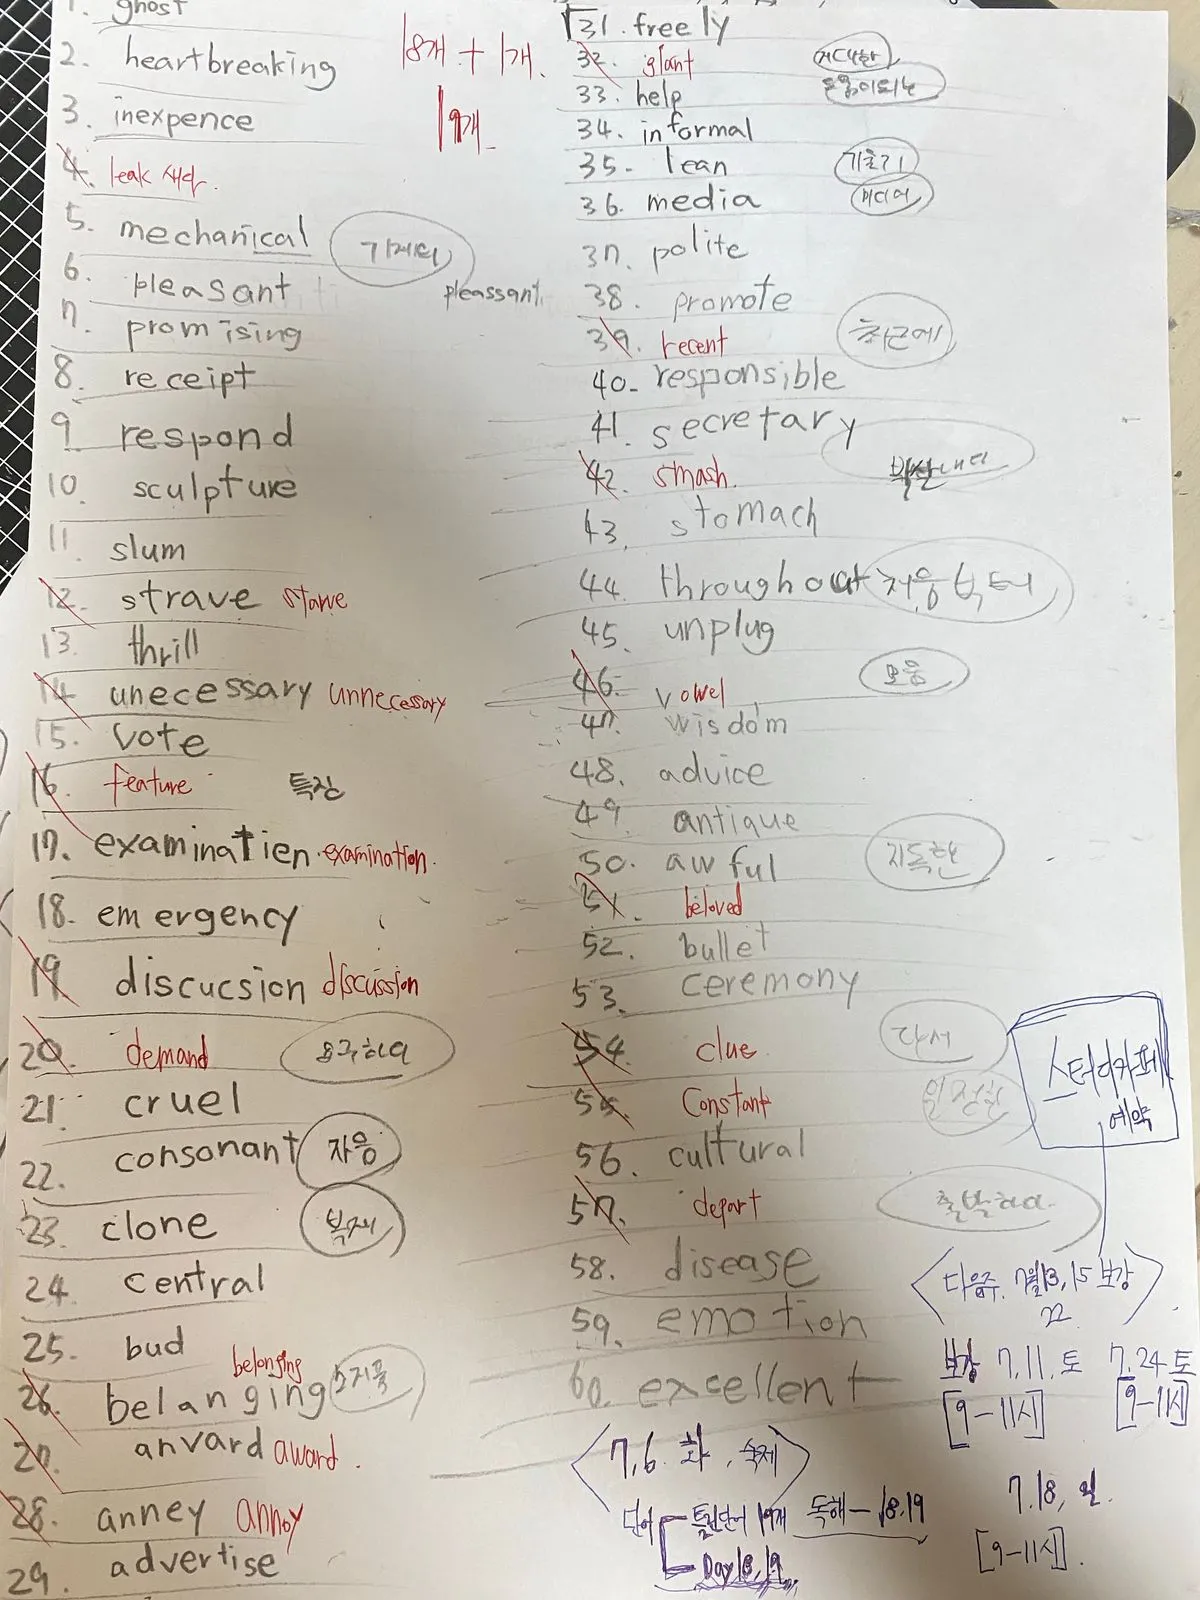 1. ghost
2. heartbreaking
18개 + 1개.
19개
3. inexpence
4. leak 새다.
5. mechanical 기계의
6. pleasant pleassant.
7. promising
8. receipt
9. respond
10. sculpture
11. slum
12. strave starve
13. thrill
14. unecessary unnecessary
15. vote
16. feature 특징
17. examinatien examination.
18. emergency
19. discucsion discussion
20. demand 요구하다
21. cruel
22. consonant 자음
23. clone 복제
24. central
25. bud
26. belanging belonging 소지품
27. anvard award.
28. anney annoy
29. advertise
31. freely
32. giant 거대한
33. help 도움이되는
34. informal
35. lean 기울기
36. media 미디어
37. polite
38. promote
39. recent 최근에
40. responsible
41. secretary
42. smash. 박살내다
43. stomach
44. throughout 처음부터
45. unplug
46. vowel 모음
47. wisdom
48. advice
49. antique
50. awful 지독한
51. beloved
52. bullet
53. ceremony
54. clue 단서
55. constant 일정한
56. cultural
57. depart 출발하다.
58. disease
59. emotion
60. excellent
스터디카페
예약
<다음주. 7월13,15 보강>
22
보강 7.11. 토 7.24 토
[9-11시] [9-11시]
7.18, 일.
[9-11시].
<7,6 화, 숙제>
단어 틀린단어 19개 독해-18.19
Day18,19